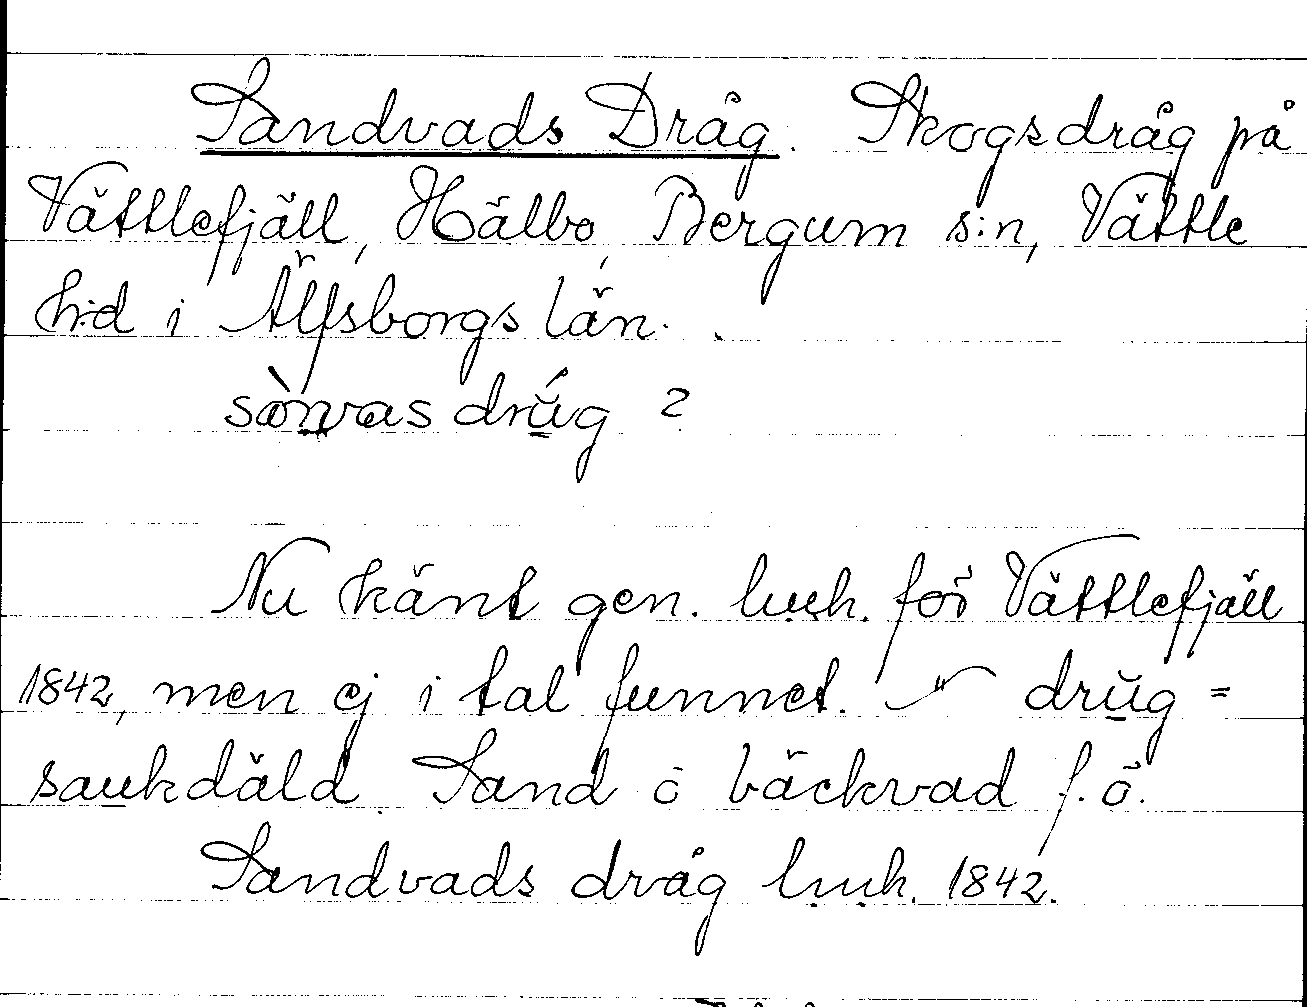 Sandvads Dråg. Skogsdråg på
Vättlefjäll, Hälbo, Bergum s:n, Vättle
h:d i Älfsborgs län.
sònvas drúg ?
Nu känt gen. för Vättlefjäll
1842, men ej i tal funnet. drug =
sankdäld. Sand o bäckvad f. ö.
Sandvads dråg 1842.